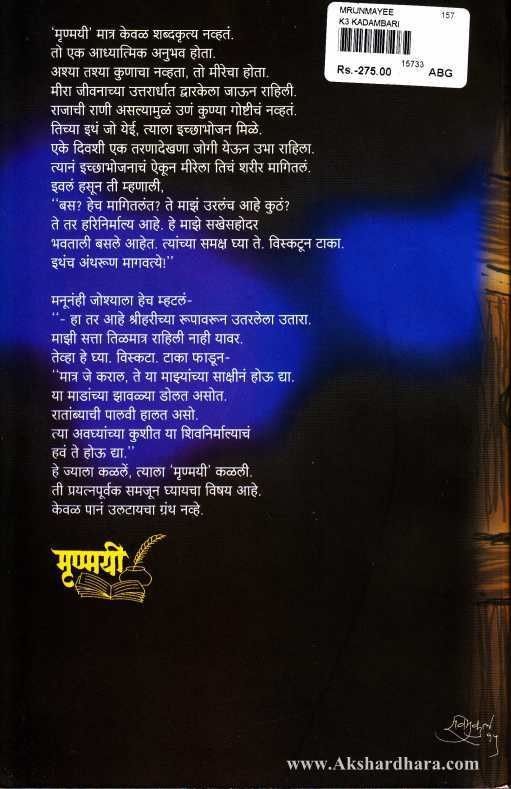 MRUNMAYEE
K3 KADAMBARI
157
15733
Rs.-275.00
ABG
'मृण्मयी' मात्र केवळ शब्दकृत्य नव्हतं.
तो एक आध्यात्मिक अनुभव होता.
अश्या तश्या कुणाचा नव्हता, तो मीरेचा होता.
मीरा जीवनाच्या उत्तरार्धात द्वारकेला जाऊन राहिली.
राजाची राणी असल्यामुळं उणं कुण्या गोष्टीचं नव्हतं.
तिच्या इथं जो येई, त्याला इच्छाभोजन मिळे.
एके दिवशी एक तरणादेखणा जोगी येऊन उभा राहिला.
त्यानं इच्छाभोजनाचं ऐकून मीरेला तिचं शरीर मागितलं.
इवलं हसून ती म्हणाली,
''बस? हेच मागितलंत? ते माझं उरलंच आहे कुठं?
ते तर हरिनिर्माल्य आहे. हे माझे सखेसहोदर
भवताली बसले आहेत. त्यांच्या समक्ष घ्या ते. विस्कटून टाका.
इथंच अंथरूण मागवत्ये!''
मनूनंही जोश्याला हेच म्हटलं-
''- हा तर आहे श्रीहरीच्या रूपावरून उतरलेला उतारा.
माझी सत्ता तिळमात्र राहिली नाही यावर.
तेव्हा हे घ्या. विस्कटा. टाका फाडून-
''मात्र जे कराल, ते या माझ्यांच्या साक्षीनं होऊ द्या.
या माडांच्या झावळ्या डोलत असोत.
रातांब्याची पालवी हालत असो.
त्या अवघ्यांच्या कुशीत या शिवनिर्माल्याचं
हवं ते होऊ द्या.''
हे ज्याला कळलें, त्याला 'मृण्मयी' कळली.
ती प्रयत्नपूर्वक समजून घ्यायचा विषय आहे.
केवळ पानं उलटायचा ग्रंथ नव्हे.
मृण्मयी
www.Akshardhara.com